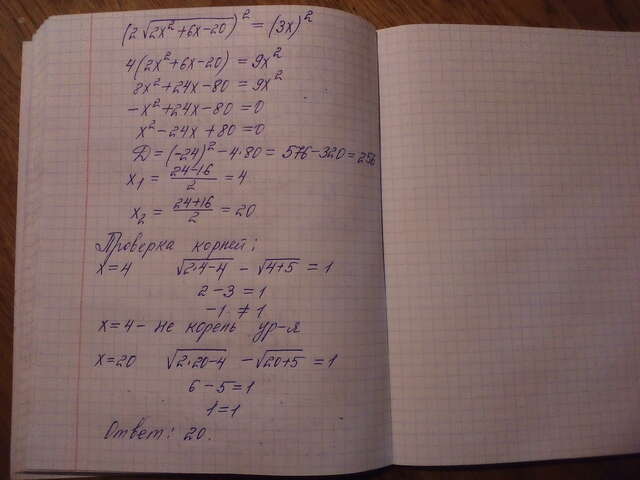 (2√(2x²+6x-20))² = (3x)²
4(2x²+6x-20) = 9x²
8x²+24x-80 = 9x²
-x²+24x-80 = 0
x²-24x+80 = 0
D = (-24)²-4·80 = 576-320 = 256
x₁ = (24-16)/2 = 4
x₂ = (24+16)/2 = 20
Проверка корней:
x=4 √(2·4-4) - √(4+5) = 1
2-3 = 1
-1 ≠ 1
x=4 - не корень ур-я
x=20 √(2·20-4) - √(20+5) = 1
6-5=1
1=1
Ответ: 20.